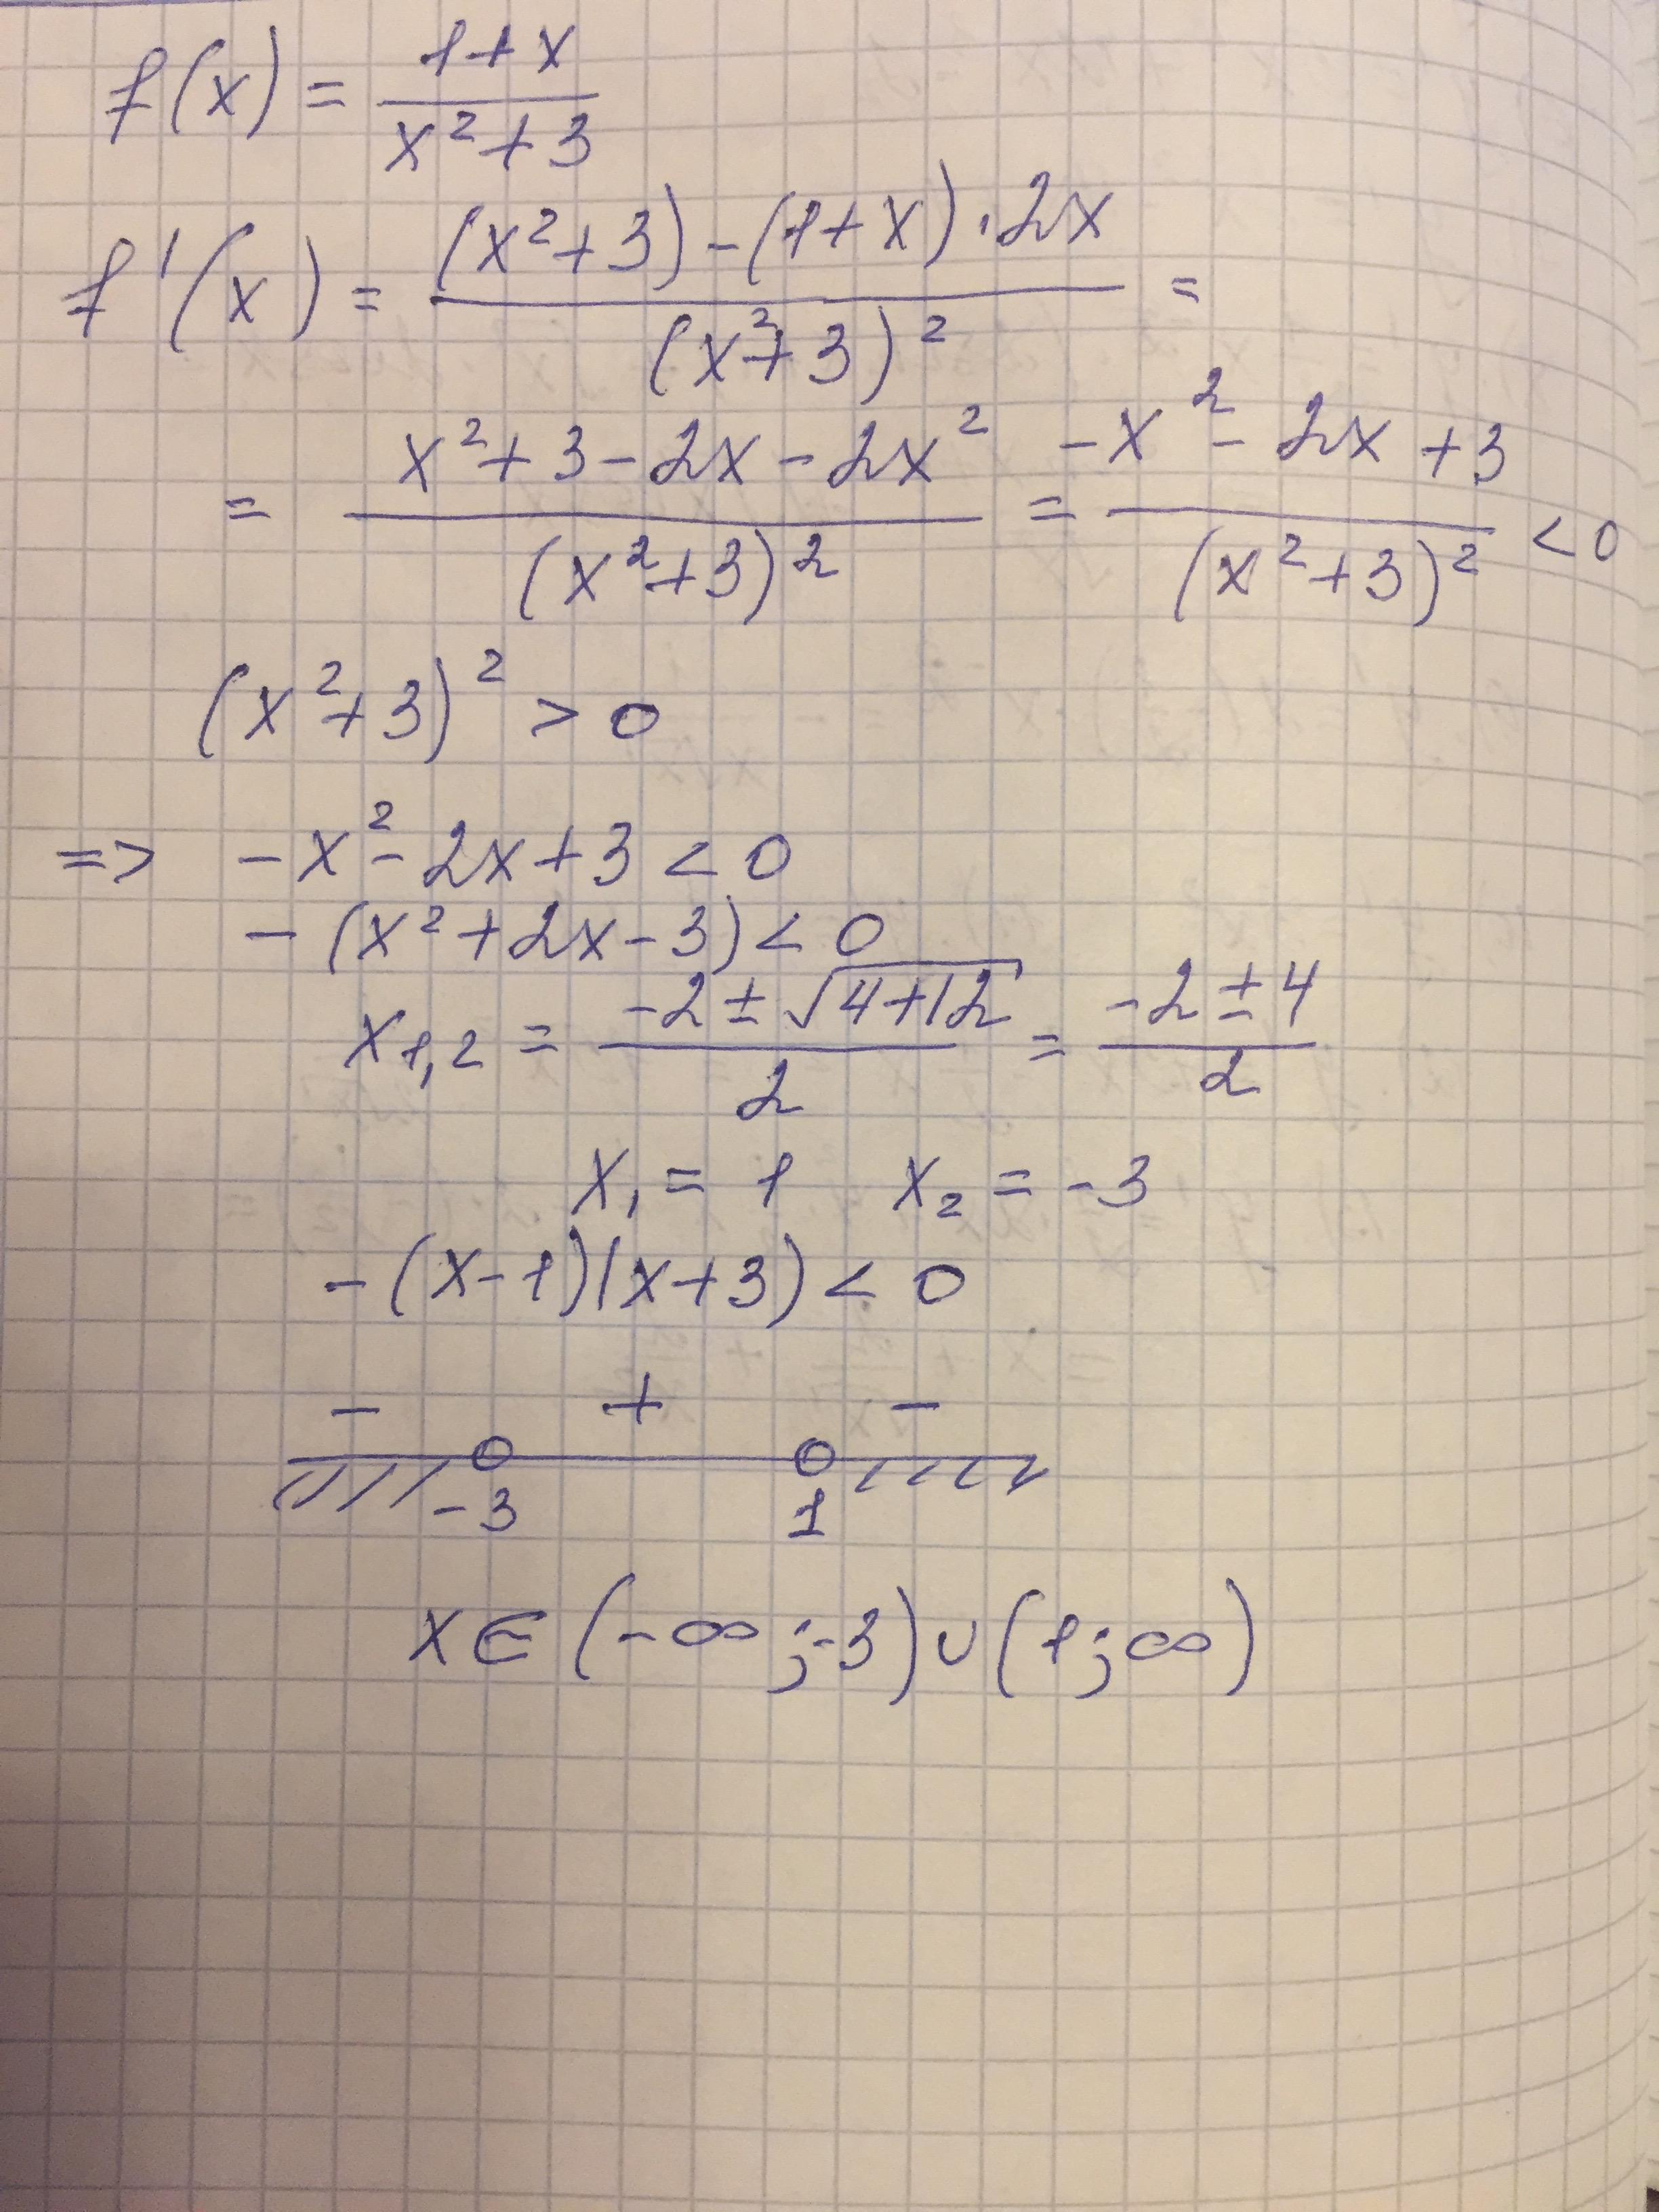 f(x) = (1+x)/(x²+3)
f'(x) = ((x²+3)-(1+x)·2x)/(x²+3)² =
= (x²+3-2x-2x²)/(x²+3)² = (-x²-2x+3)/(x²+3)² < 0
(x²+3)² > 0
=> -x²-2x+3 < 0
-(x²+2x-3) < 0
x₁,₂ = (-2±√(4+12))/2 = (-2±4)/2
x₁ = 1 x₂ = -3
-(x-1)(x+3) < 0
- + -
-3 1
x∈(-∞;-3)∪(1;∞)